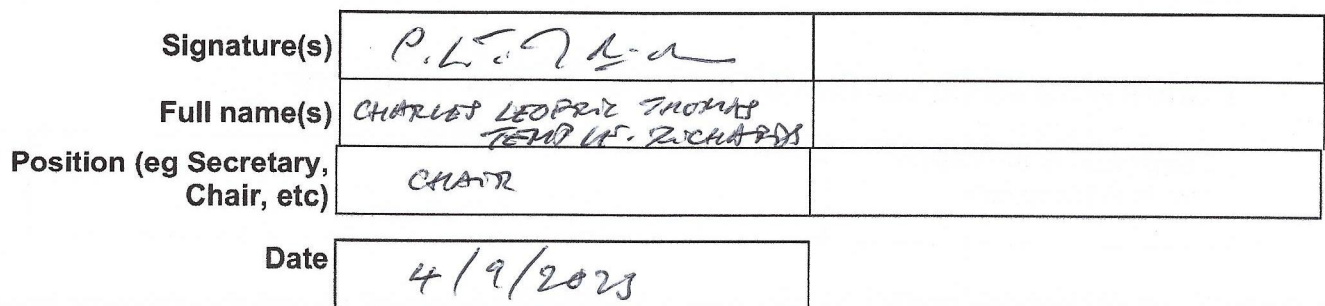 Signature(s)
Full name(s) CHARLES LEOFRIC THOMAS
TEMPLE-RICHARDS
Position (eg Secretary,
Chair, etc) CHAIR
Date 4/9/2023